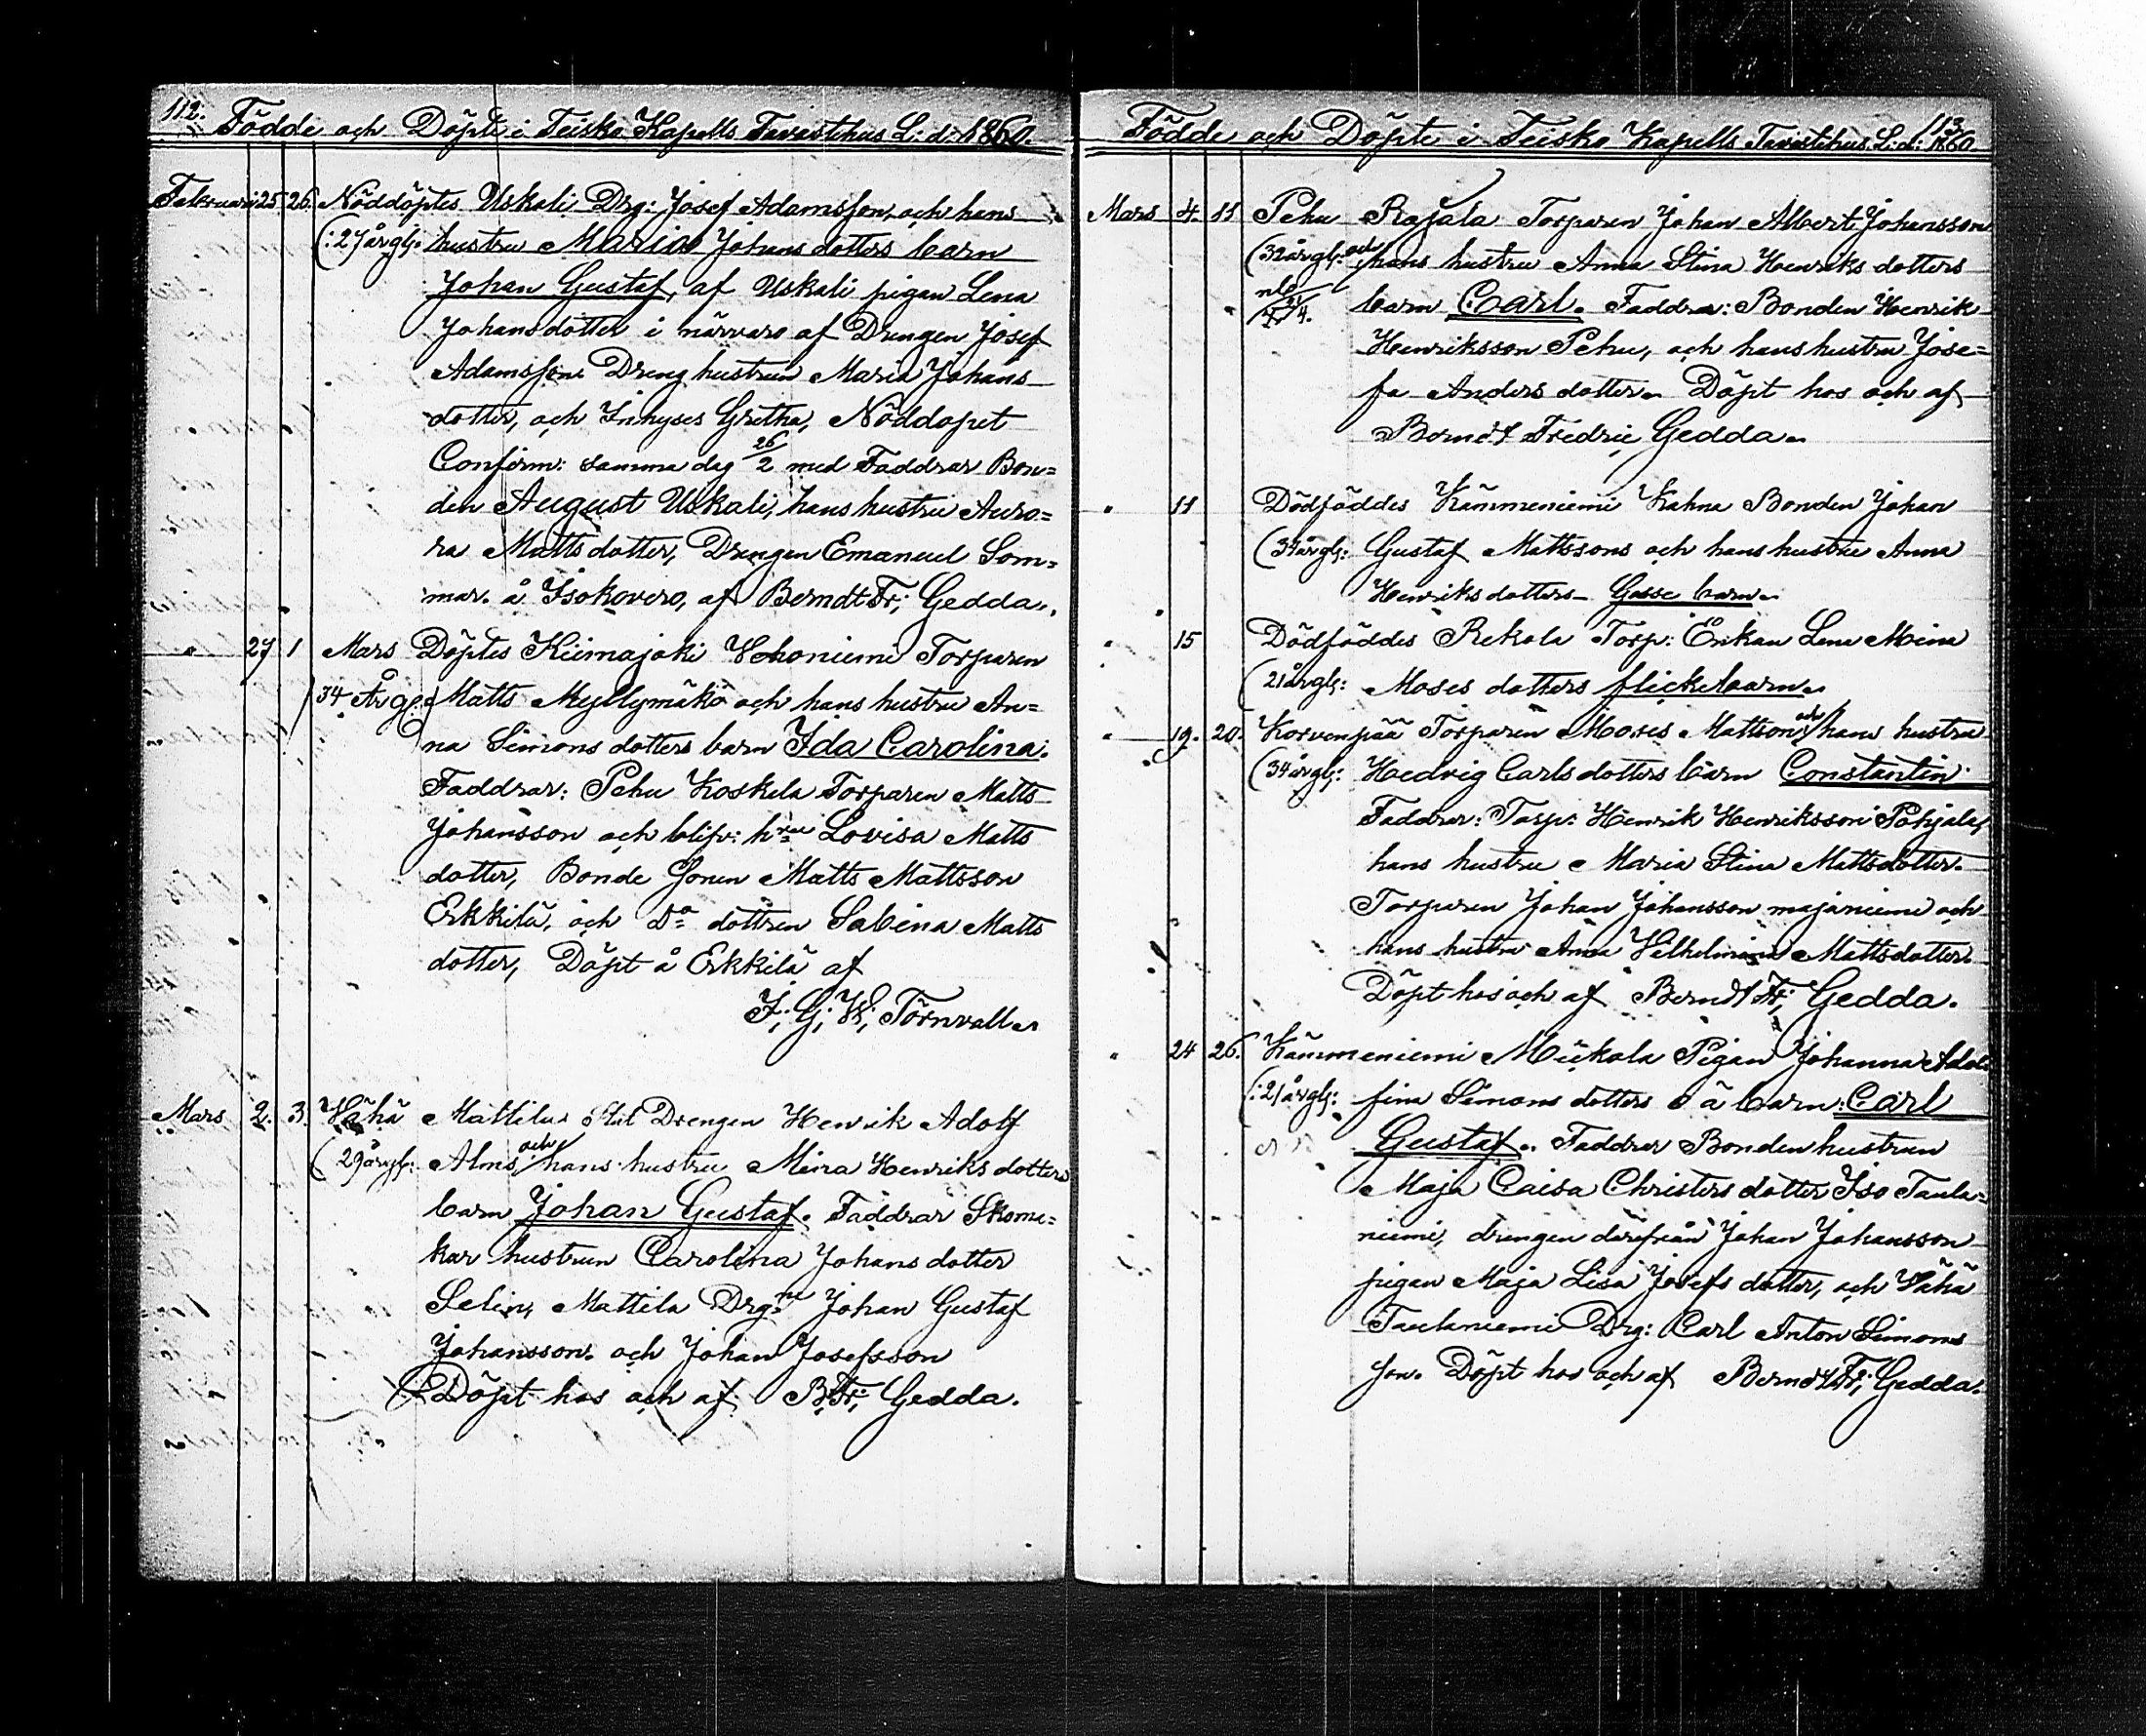 112. Födde och Döpte i Teisko Kapells Tavastehus L: d: 1860.
Februari 25 26. Nöddöptes Uskali Drg: Josef Adamsson och hans
(: 27 årg: hustru Maria Johans dotters barn
Johan Gustaf, af Uskali pigan Lena
Johansdotter i närvaro af Drengen Josef
Adamsson Dreng hustrun Maria Johans
dotter, och Inhyses Gretha, Nöddopet
Confirm: samma dag 26/2 med Faddrar Bon=
den August Uskali, hans hustru Auro=
ra Mattsdotter, Drengen Emanuel Som=
mar. å Isokovero, af Berndt Fr; Gedda.
" 27 1 Mars Döptes Kiimajoki Torparen
34 År g: Matts Myllymäki och hans hustru An=
na Simons dotters barn Ida Carolina.
Faddrar: Pehu Koskela Torparen Matts
Johansson och blifv: h:ru Lovisa Matts
dotter, Bonde Sonen Matts Mattsson
Erkkilä, och D:o dottren Sabina Matts
dotter, Döpt å Erkkilä af
J; G; W; Törnvall
Mars 2. 3. Wähä Mattila Stat Drengen Henrik Adolf
(29 årg: Alms och hans hustru Mina Henriks dotters
barn Johan Gustaf. Faddrar Skoma=
kar hustrun Carolina Johans dotter
Selin, Mattila Drg:ne Johan Gustaf
Johansson och Johan Josefsson
Döpt hos och af B; Fr; Gedda.
Födde och Döpte i Teisko Kapells Tavastehus L: d: 1860. 113
Mars 4. 11 Pehu Rajala Torparen Johan Albert Johansson
(32 årg: och hans hustru Anna Stina Henriks dotters
barn Carl. Faddrar: Bonden Henrik
Henriksson Pehu, och hans hustru Jose=
fa Anders dotter. Döpt hos och af
Berndt Fredric Gedda.
" 11 Dödföddes Kämmeniemi Kahna Bonden Johan
(34 årg: Gustaf Mattssons och hans hustru Anna
Henriks dotters Gosse barn.
" 15 Dödföddes Rekola Torp: Enkan Lena Mina
(21 årg: Moses dotters flickebarn.
" 19. 20. Korvenpää Torparen Moses Mattson och hans hustru
(34 årg: Hedvig Carls dotters barn Constantin.
Faddrar: Torp: Henrik Henriksson Pohjala,
hans hustru Maria Stina Mattsdotter.
Torparen Johan Johansson majaniemi och
hans hustru Anna Wilhelmina Mattsdotter.
Döpt hos och af Berndt Fr; Gedda.
" 24 26. Kämmeniemi Mickola Pigan Johanna Adol
(: 21 årg: fina Simons dotters o ä barn: Carl
Gustaf. Faddrar Bonden hustrun
Maja Caisa Christers dotter Iso Taula=
niemi, drengen därifrån Johan Johansson
pigan Maja Lisa Josefs dotter, och Wähä
Taulaniemi Drg: Carl Anton Simons
son. Döpt hos och af Berndt Fr; Gedda.